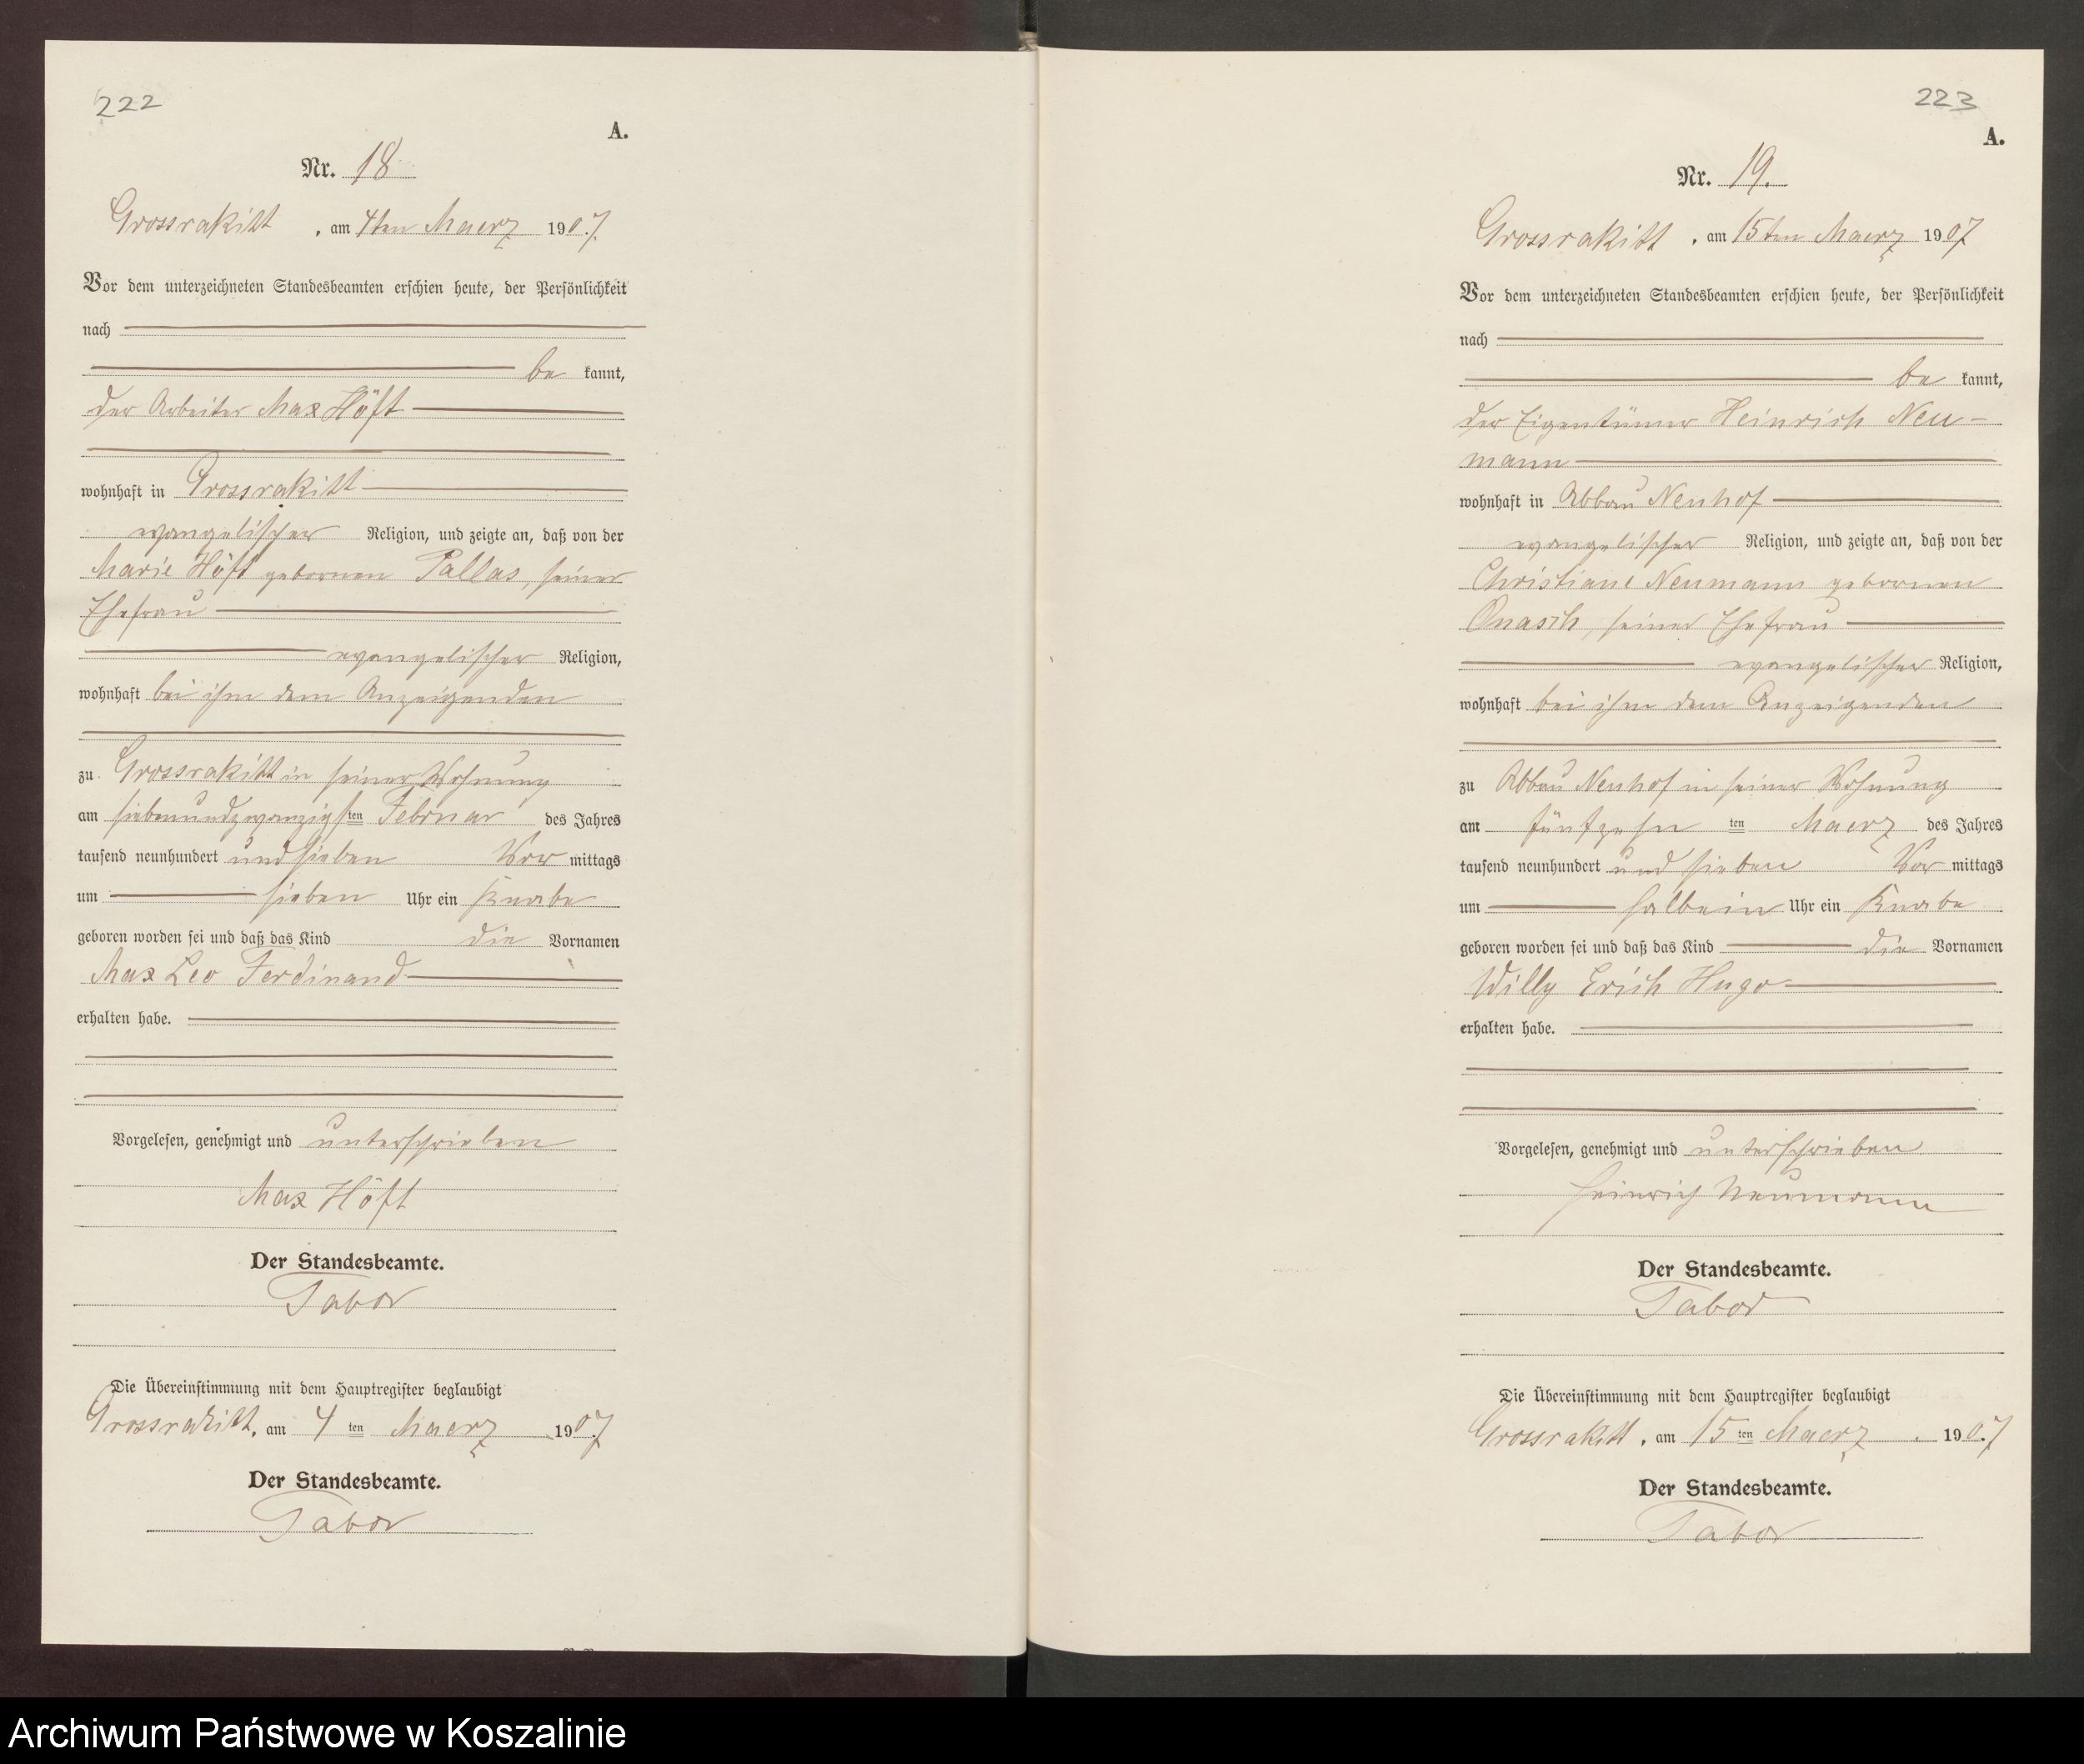 222
A.
Nr. 18
Grossrakitt, am 4ten Maerz 1907.
Vor dem unterzeichneten Standesbeamten erschien heute, der Persönlichkeit
nach
be kannt,
der Arbeiter Max Höft
wohnhaft in Grossrakitt
evangelischer Religion, und zeigte an, daß von der
Marie Höft gebornen Pallas, seiner
Ehefrau
evangelischer Religion,
wohnhaft bei ihm dem Anzeigenden
zu Grossrakitt in seiner Wohnung
am siebenundzwanzigsten Februar des Jahres
tausend neunhundert und sieben Vor mittags
um sieben Uhr ein Knabe
geboren worden sei und daß das Kind die Vornamen
Max Leo Ferdinand
erhalten habe.
Vorgelesen, genehmigt und unterschrieben
Max Höft
Der Standesbeamte.
Tabor
Die Übereinstimmung mit dem Hauptregister beglaubigt
Grossrakitt, am 4 ten Maerz 1907.
Der Standesbeamte.
Tabor
223
A.
Nr. 19.
Grossrakitt, am 15ten Maerz 1907
Vor dem unterzeichneten Standesbeamten erschien heute, der Persönlichkeit
nach
be kannt,
der Eigentümer Heinrich Neu-
mann
wohnhaft in Abbau Neuhof
evangelischer Religion, und zeigte an, daß von der
Christiane Neumann gebornen
Onasch, seiner Ehefrau
evangelischer Religion,
wohnhaft bei ihm dem Anzeigenden
zu Abbau Neuhof in seiner Wohnung
am fünfzehn ten Maerz des Jahres
tausend neunhundert und sieben Vor mittags
um halbein Uhr ein Knabe
geboren worden sei und daß das Kind die Vornamen
Willy Erich Hugo
erhalten habe.
Vorgelesen, genehmigt und unterschrieben
Heinrich Neumann
Der Standesbeamte.
Tabor
Die Übereinstimmung mit dem Hauptregister beglaubigt
Grossrakitt, am 15 ten Maerz 1907
Der Standesbeamte.
Tabor
Archiwum Państwowe w Koszalinie